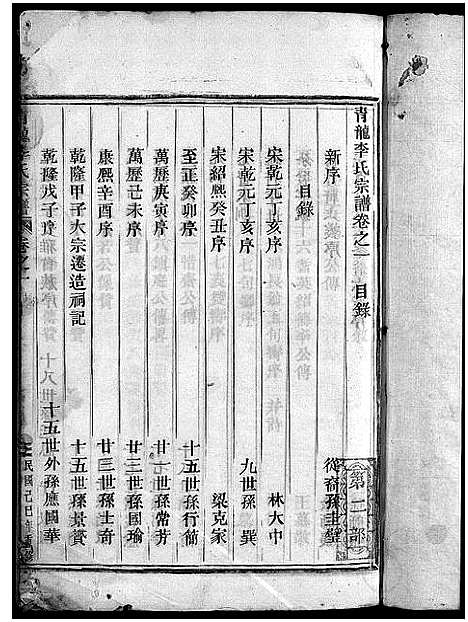 青龍李氏宗譜卷之一 目錄
第二部
新序 從裔孫圭璧
目錄
宋乾元丁亥序 林大中
宋乾元丁亥序 九世孫 巽
宋紹熙癸丑序 梁克家
至正癸卯序 十五世孫行簡
萬歷庚寅序 廿一世孫常芳
萬歷己未序 廿二世孫國瑜
康熙辛酉序 廿三世孫士奇
乾隆甲子大宗遷造祠記 十五世孫景贊
乾隆戊子 十五世外孫應國華
民國己巳年